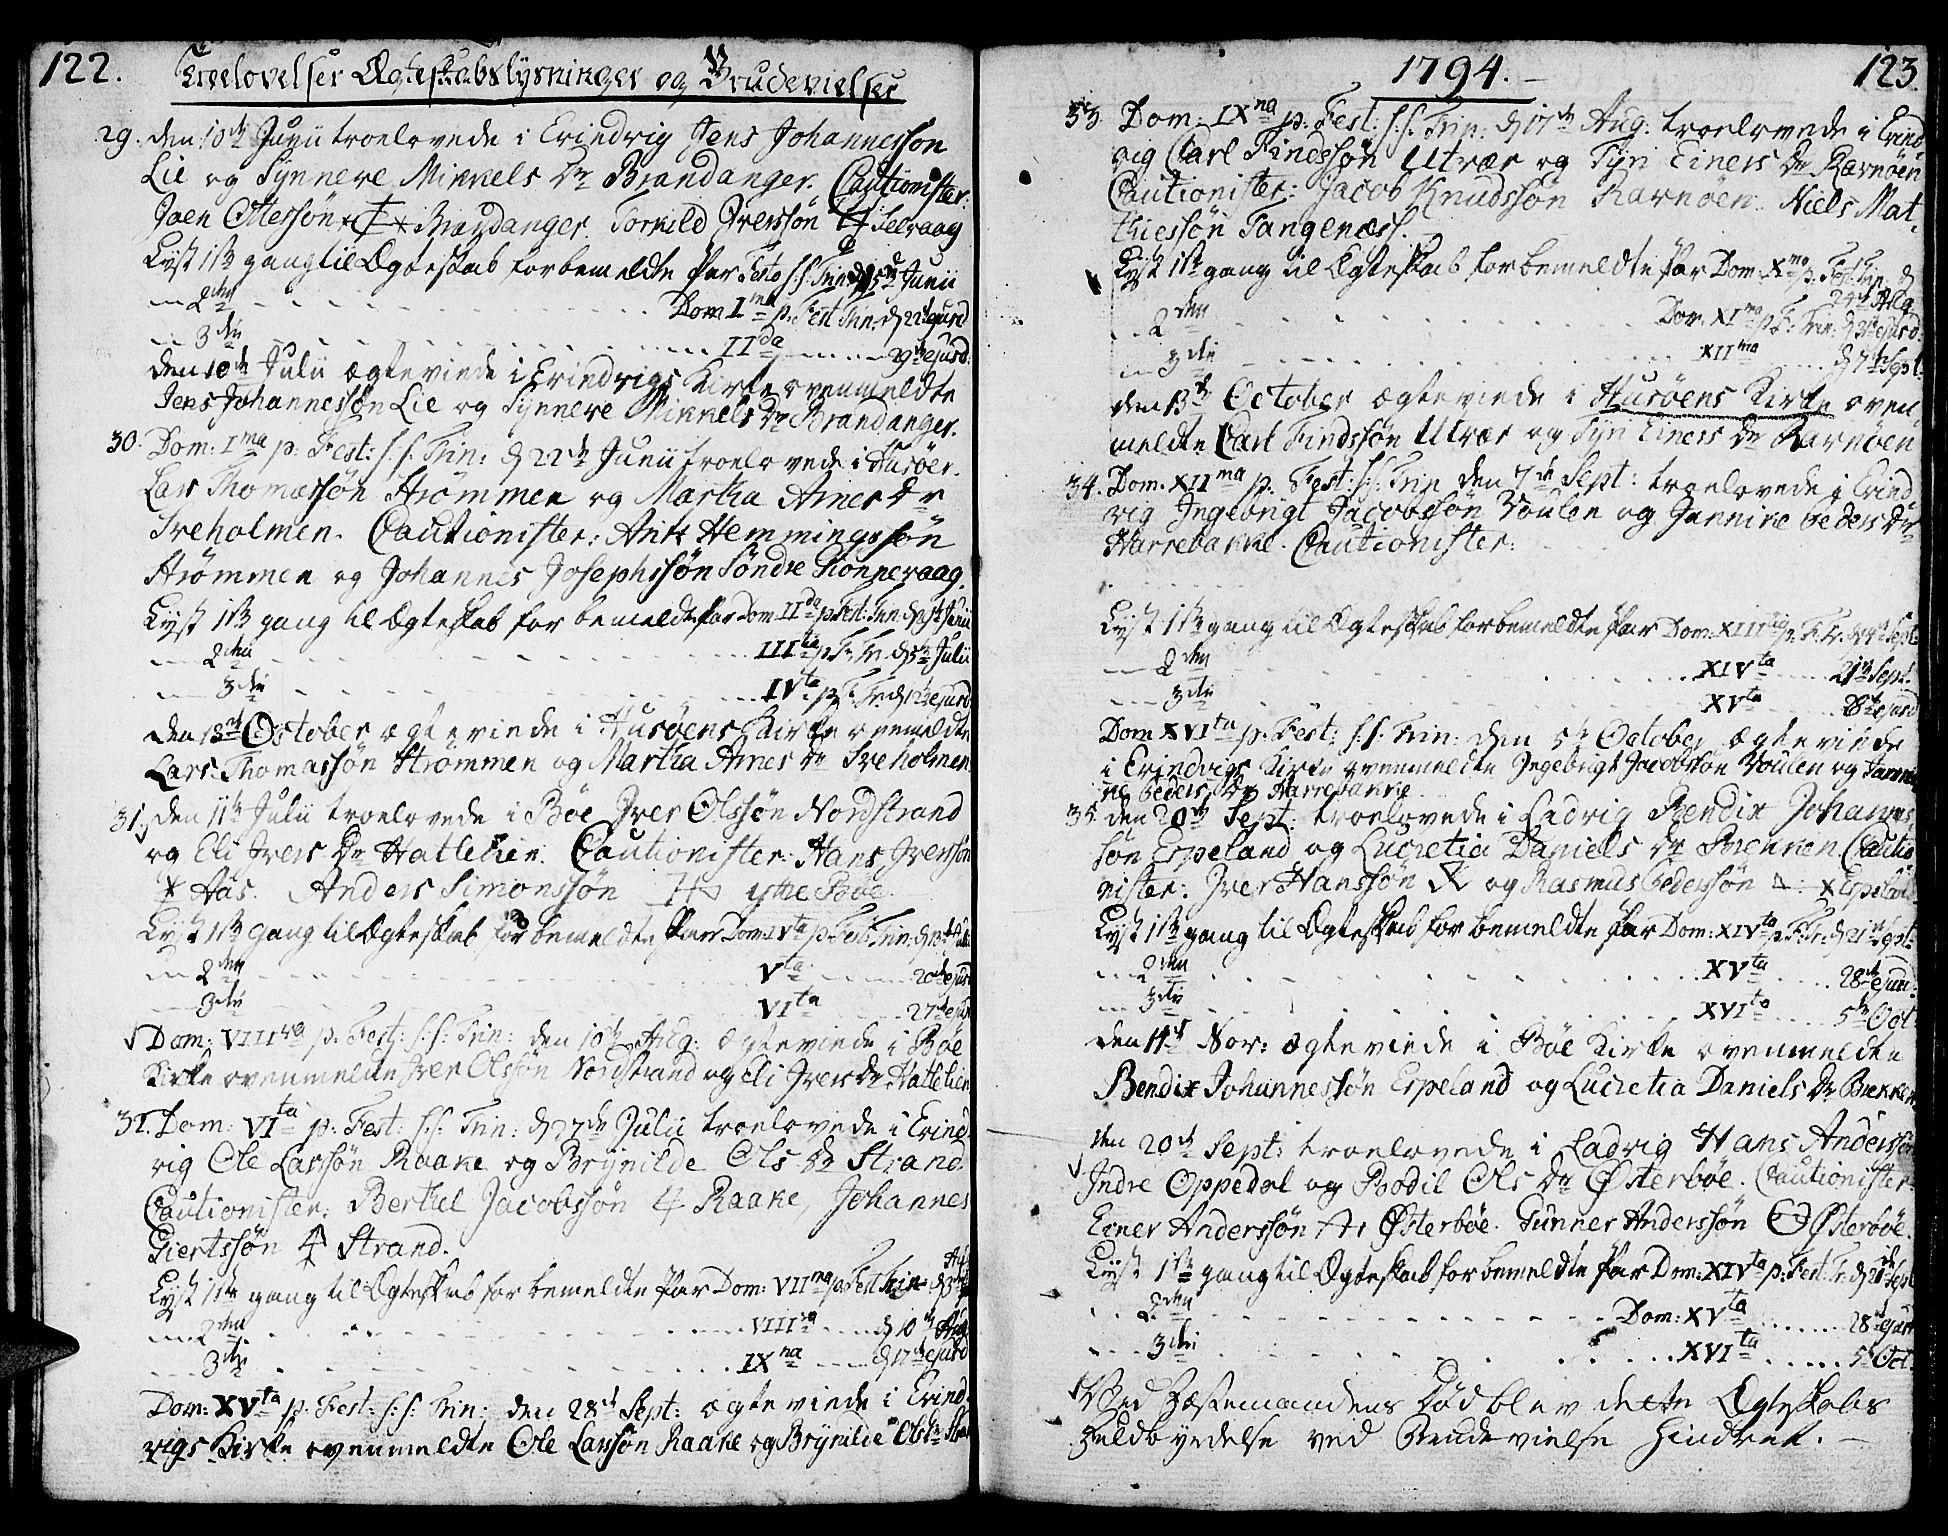 122. Troelovelser Ægteskabslysninger og Brudevielser
29. den 10de Junii troelovede i Evindvig Jens Johannessøn
Lie og Synneve Mikkels Dr Brandanger. Cautionister.
Joen Ottessøn Brandanger. Torkild Iverssøn Selvaag
Lyst 1ste gang til Ægteskab for bemeldte Par Festo s.s. Trin: d 15de Junii
2den Dom. Ima p. Fest Trin: d 22de ejusd
3die IIda 29de ejusd:
den 10de Julii ægteviede i Evindvigs Kirke ovenmeldte
Jens Johannessøn Lie og Synneve Mikkels Dr Brandanger.
30. Dom: Ima p. Fest: s.s. Trin: d 22de Junii troelovede i Husøer.
Lars Thomassøn Strømmen og Martha Arnes Dr
Sveholmen. Cautionister: Anth Hemmingssøn
Strømmen og Johannes Josephssøn Søndre Kionneraag.
Lyst 1ste gang til Ægteskab for bemeldte Par Dom: IIda p. Fest: Trin: d 29de Junii
2den IIItia p. F. Tr. d 5te Julii
3die IVta p. F. Tr. d 12te ejusd
den 13de October ægteviede i Husøens Kirke ovenmeldte
Lars Thomassøn Strømmen og Martha Arnes Dr Sveholmen
31. den 11te Julii troelovede i Bøe Iver Olssøn Nordstrand
og Eli Ivers Dr Hatlekin. Cautionister: Hans Iverssøn
Aas. Anders Simonssøn ytre Bøe.
Lyst 1ste gang til Ægteskab for bemeldte Par Dom: IVta p. Fest: Trin: d 13de
2den Vta 20de ejusd
3die VIta 27de ejusd
Dom: VIIIva p: Fest: s.s: Trin: den 10de Aug: ægteviede i Bøe
Kirke ovenmeldte Iver Olssøn Nordstrand og Eli Ivers Dr Hatlekin
32. Dom: VIta p. Fest: s.s: Trin: d 27de Julii troelovede i Evind
vig Ole Larssøn Raake og Brynilde Ols Dr Strand.
Cautionister: Bertel Jacobssøn Raake, Johannes
Giertssøn Strand.
Lyst 1ste gang til Ægteskab for bemeldte Par Dom: VIIma p. Fest Trin d 3die Aug
2den VIIIva d 10de Aug
3die IXna d 17de ejusd
Dom: XVta p. Fest: s.s: Trin: den 28de Sept: ægteviede i Evind
vigs Kirke ovenmeldte Ole Larssøn Raake og Brynilde Ols Dr Strand
1794. 123
33 Dom: IXna p. Fest: s.s. Trin: d 17de Aug: troelovede i Evind
vig Carl Findssøn Utvær og Syn Einers Dr Ravnøen
Cautionister: Jacob Knudssøn Ravnøen. Niels Mat-
thiessøn Tangenæss.
Lyst 1ste gang til Ægteskab for bemeldte Par Dom: Xma p. Fest Trin d
24de Aug
2den Dom. XIma p F. Trin: d 31te ejusd:
3die XIIma d 7de Sept.
den 13de October ægteviede i Husøens Kirke oven
meldte Carl Findssøn Utvær og Syn Einers Dr Ravnøen
34. Dom. XIIma p. Fest: s.s: Trin den 7de Sept: troelovede i Evind
vig Ingebrigt Jacobssøn Voulen og Jannike Peders Dr
Harrebakke. Cautionister:
Lyst 1ste gang til Ægteskab for bemeldte Par Dom: XIIItia p: F: Tr: d 14de Sept
2den XIVta 21de Sept.
3die XVta 28de ejusd
Dom XVIta p. Fest: s.s. Trin: den 5te October ægteviede
i Evindvigs Kirke ovenmeldte Ingebrigt Jacobssøn Voulen og Janni
ke Peders Dr Harrebakke
35. den 20de Sept: troelovede i Ladvig Bendix Johannes
søn Espeland og Lucretia Daniels Dr Brekken Cautio
nister: Iver Hanssøn og Rasmus Pederssøn Espeland
Lyst 1ste gang til Ægteskab for bemeldte Par Dom: XIVta p: F: Tr: d 21de Sept:
2den XVta 28de ejusd:
3die XVIta 5te Oct
den 11te Nov: ægteviede i Bøe Kirke ovenmeldte
Bendix Johannessøn Espeland og Lucretia Daniels Dr Brekken
den 20de Sept: troelovede i Ladvig Hans Anderssøn
Indre Oppedal og Boodil Ols Dr Østerbøe. Cautionister
Einer Anderssøn Østerbøe. Gunner Anderssøn Østerbøe.
Lyst 1ste gang til Ægteskab for bemeldte Par Dom: XIVta p: Fest: Tr: d 21de Sept
2den Dom: XVta 28de ejusd
3die XVIta 5te Oct.
Ved Fæstemandens Død blev dette Ægteskabs
Fuldbyrdelse ved Brudevielse hindret.